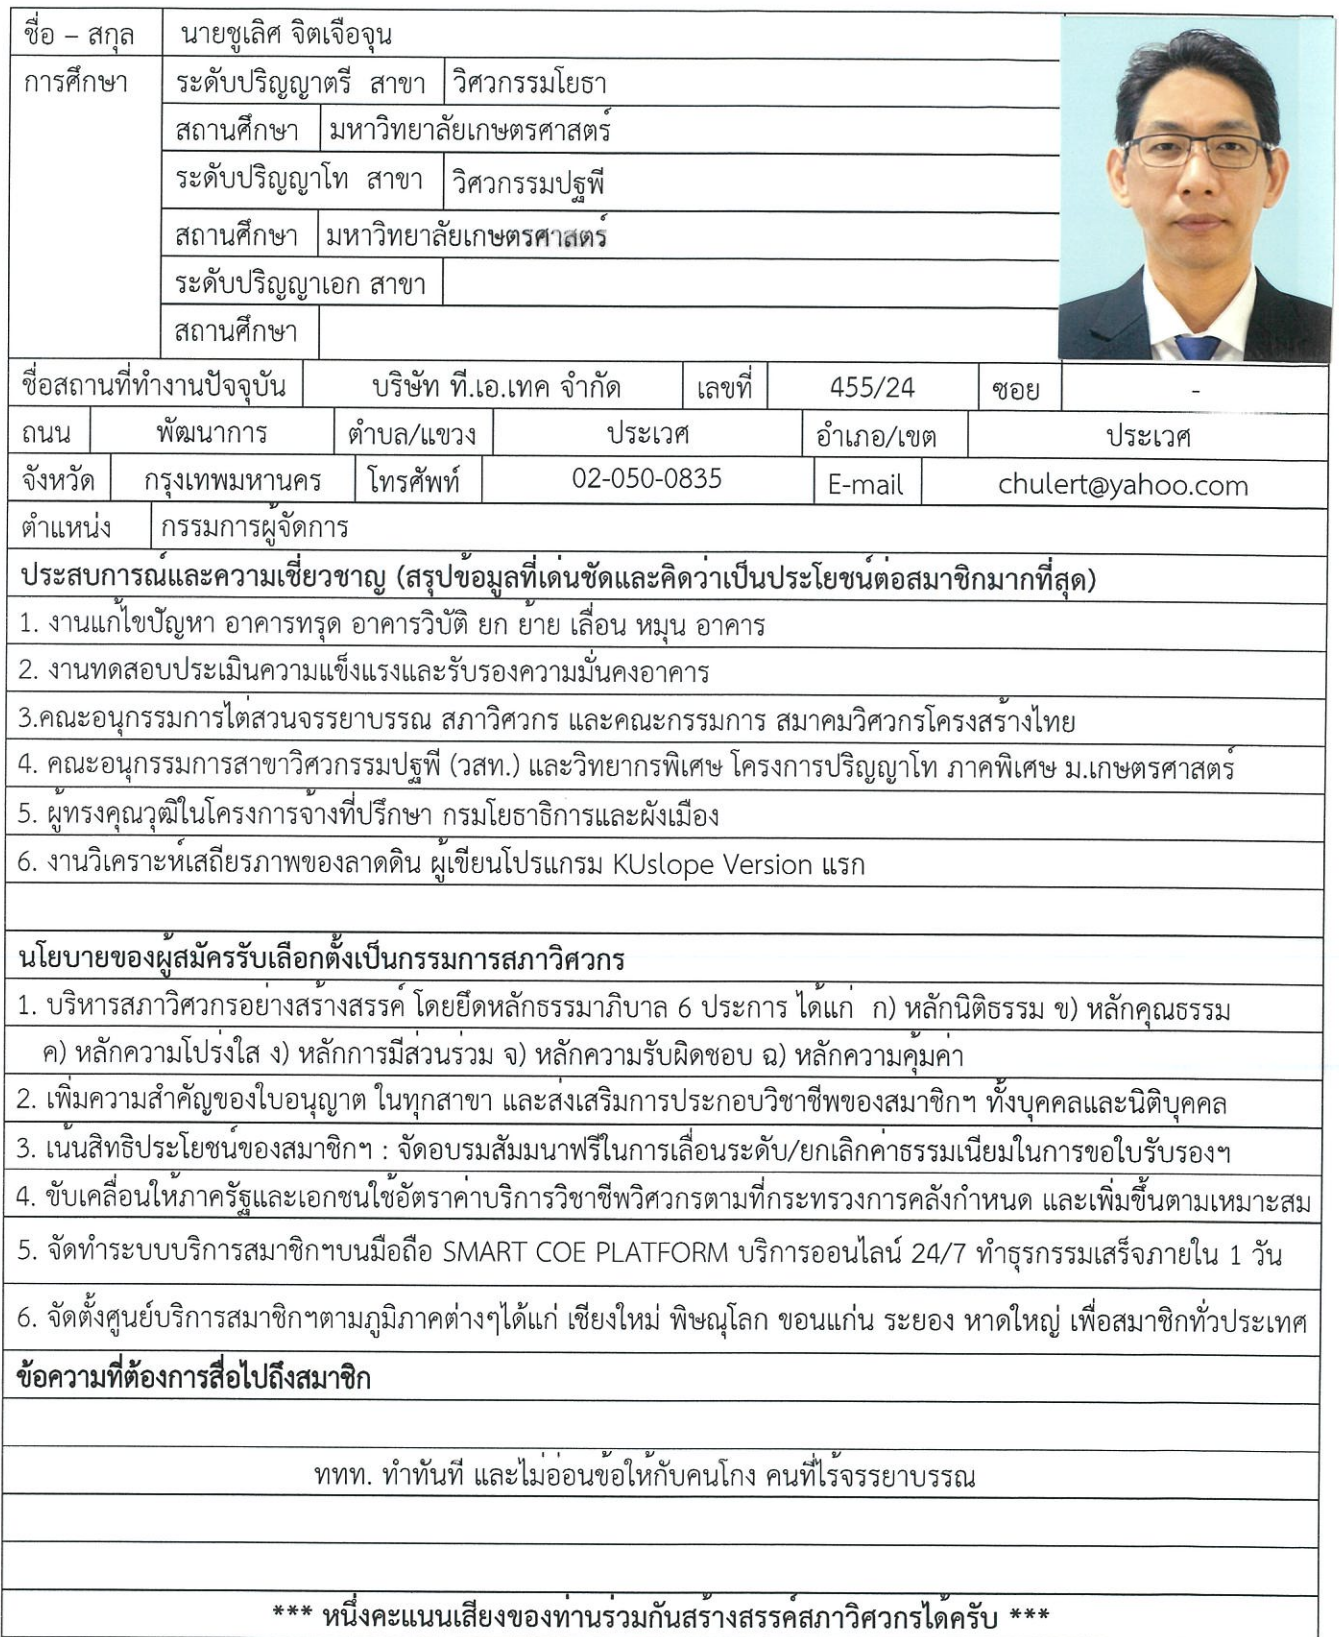 ชื่อ – สกุล นายชูเลิศ จิตเจือจุน
การศึกษา ระดับปริญญาตรี สาขา วิศวกรรมโยธา
สถานศึกษา มหาวิทยาลัยเกษตรศาสตร์
ระดับปริญญาโท สาขา วิศวกรรมปฐพี
สถานศึกษา มหาวิทยาลัยเกษตรศาสตร์
ระดับปริญญาเอก สาขา
สถานศึกษา
ชื่อสถานที่ทำงานปัจจุบัน บริษัท ที.เอ.เทค จำกัด เลขที่ 455/24 ซอย -
ถนน พัฒนาการ ตำบล/แขวง ประเวศ อำเภอ/เขต ประเวศ
จังหวัด กรุงเทพมหานคร โทรศัพท์ 02-050-0835 E-mail chulert@yahoo.com
ตำแหน่ง กรรมการผู้จัดการ
ประสบการณ์และความเชี่ยวชาญ (สรุปข้อมูลที่เด่นชัดและคิดว่าเป็นประโยชน์ต่อสมาชิกมากที่สุด)
1. งานแก้ไขปัญหา อาคารทรุด อาคารวิบัติ ยก ย้าย เลื่อน หมุน อาคาร
2. งานทดสอบประเมินความแข็งแรงและรับรองความมั่นคงอาคาร
3.คณะอนุกรรมการไต่สวนจรรยาบรรณ สภาวิศวกร และคณะกรรมการ สมาคมวิศวกรโครงสร้างไทย
4. คณะอนุกรรมการสาขาวิศวกรรมปฐพี (วสท.) และวิทยากรพิเศษ โครงการปริญญาโท ภาคพิเศษ ม.เกษตรศาสตร์
5. ผู้ทรงคุณวุฒิในโครงการจ้างที่ปรึกษา กรมโยธาธิการและผังเมือง
6. งานวิเคราะห์เสถียรภาพของลาดดิน ผู้เขียนโปรแกรม KUslope Version แรก
นโยบายของผู้สมัครรับเลือกตั้งเป็นกรรมการสภาวิศวกร
1. บริหารสภาวิศวกรอย่างสร้างสรรค์ โดยยึดหลักธรรมาภิบาล 6 ประการ ได้แก่ ก) หลักนิติธรรม ข) หลักคุณธรรม
ค) หลักความโปร่งใส ง) หลักการมีส่วนร่วม จ) หลักความรับผิดชอบ ฉ) หลักความคุ้มค่า
2. เพิ่มความสำคัญของใบอนุญาต ในทุกสาขา และส่งเสริมการประกอบวิชาชีพของสมาชิกฯ ทั้งบุคคลและนิติบุคคล
3. เน้นสิทธิประโยชน์ของสมาชิกฯ : จัดอบรมสัมมนาฟรีในการเลื่อนระดับ/ยกเลิกค่าธรรมเนียมในการขอใบรับรองฯ
4. ขับเคลื่อนให้ภาครัฐและเอกชนใช้อัตราค่าบริการวิชาชีพวิศวกรตามที่กระทรวงการคลังกำหนด และเพิ่มขึ้นตามเหมาะสม
5. จัดทำระบบบริการสมาชิกฯบนมือถือ SMART COE PLATFORM บริการออนไลน์ 24/7 ทำธุรกรรมเสร็จภายใน 1 วัน
6. จัดตั้งศูนย์บริการสมาชิกฯตามภูมิภาคต่างๆได้แก่ เชียงใหม่ พิษณุโลก ขอนแก่น ระยอง หาดใหญ่ เพื่อสมาชิกทั่วประเทศ
ข้อความที่ต้องการสื่อไปถึงสมาชิก
ททท. ทำทันที และไม่อ่อนข้อให้กับคนโกง คนที่ไร้จรรยาบรรณ
*** หนึ่งคะแนนเสียงของท่านร่วมกันสร้างสรรค์สภาวิศวกรได้ครับ ***